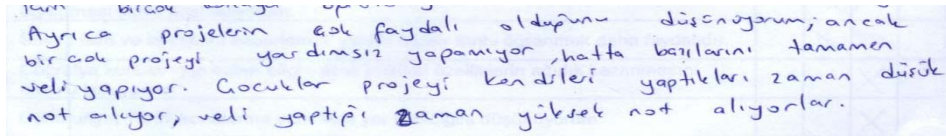 Ayrıca projelerin çok faydalı olduğunu düşünüyorum, ancak
bir çok projeyi yardımsız yapamıyor, hatta bazılarını tamamen
veli yapıyor. Çocuklar projeyi kendileri yaptıkları zaman düşük
not alıyor, veli yaptığı zaman yüksek not alıyorlar.